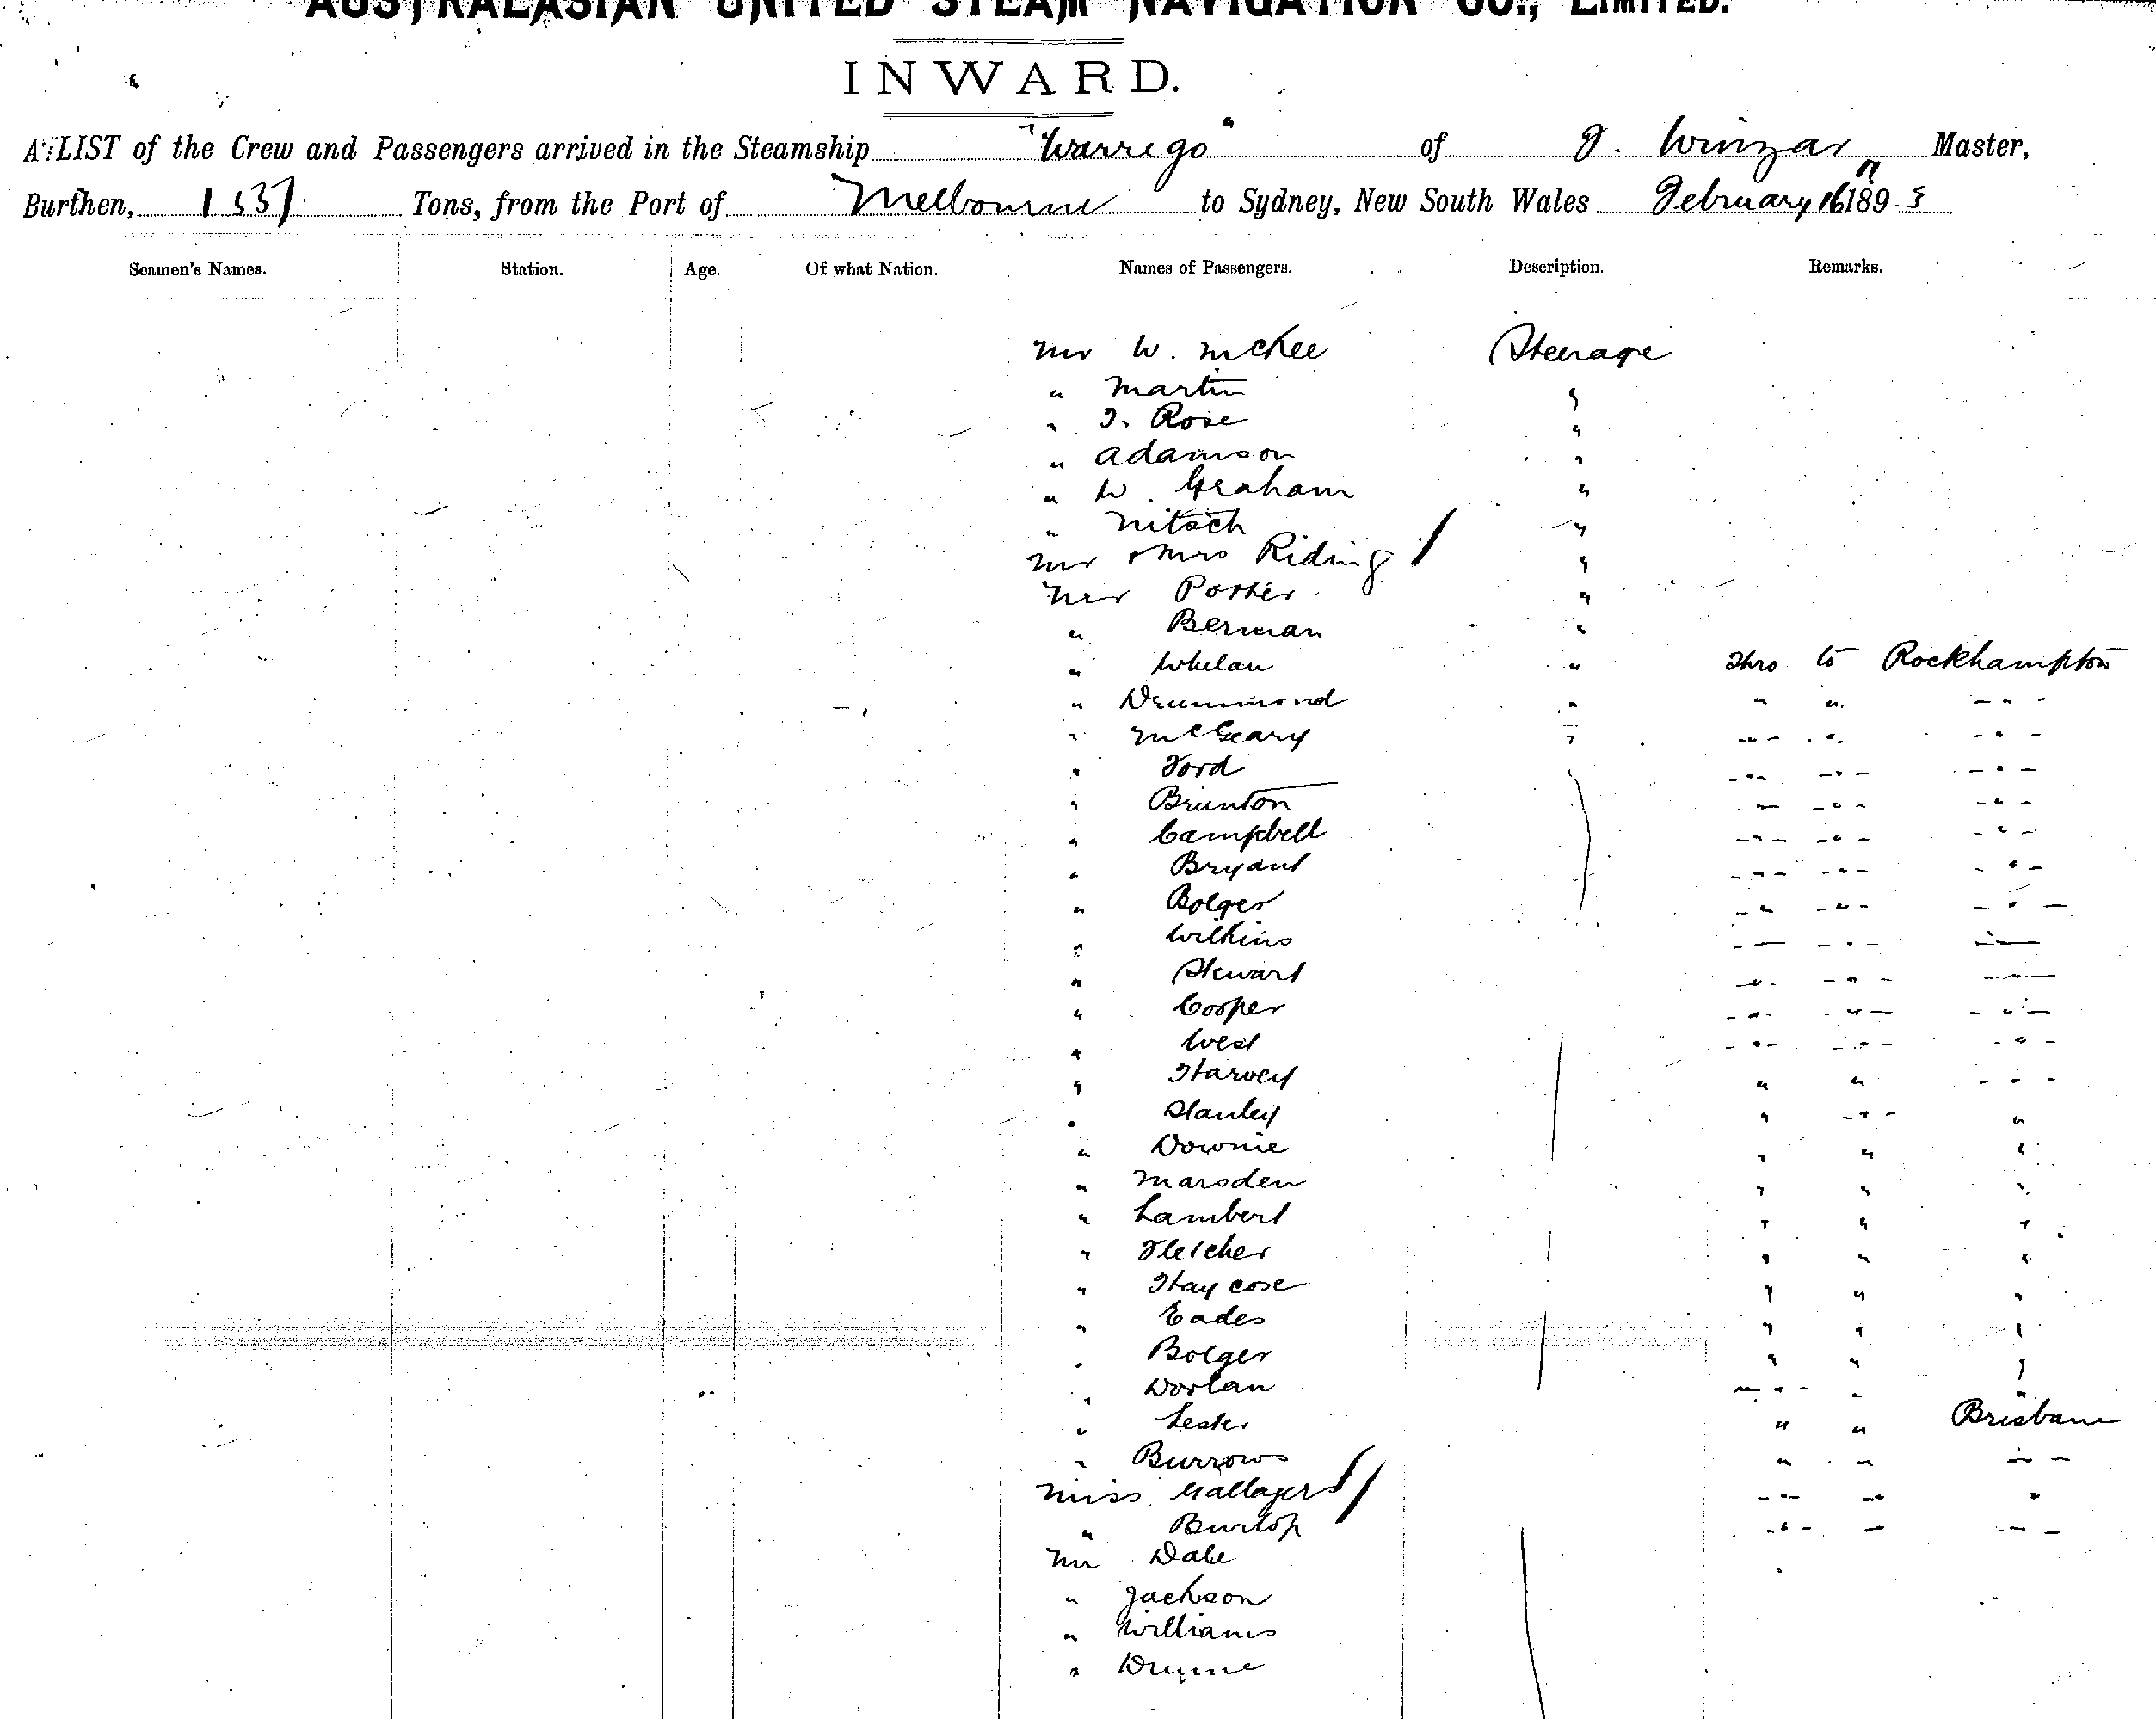 AUSTRALASIAN UNITED STEAM NAVIGATION CO., LIMITED.
INWARD.
A LIST of the Crew and Passengers arrived in the Steamship "Warrego" of J. Winzar Master,
Burthen, 1537 Tons, from the Port of Melbourne to Sydney, New South Wales February 16th 1893
Seamen's Names. Station. Age. Of what Nation. Names of Passengers. Description. Remarks.
Mr W. McKee Steerage
" Martin "
" T. Rose "
" Adamson "
" W. Graham "
" Nitsch "
Mr & Mrs Riding / "
Mr Porter "
" Berman "
" Whelan " Thro to Rockhampton
" Drummond " " " "
" McGeary " " " "
" Ford " " "
" Brunton " " "
" Campbell " " "
" Bryant " " "
" Bolger " " "
" Wilkins " " "
" Stewart " " "
" Cooper " " "
" West " " "
" Harvey " " "
" Stanley " " "
" Downie " " "
" Marsden " " "
" Lambert " " "
" Fletcher " " "
" Haycose " " "
" Eades " " "
" Bolger " " "
" Dorlan " " "
" Lester " " Brisbane
" Burrows " " "
Miss Gallagers // " " "
" Burtop " " "
Mr Dale
" Jackson
" Williams
"